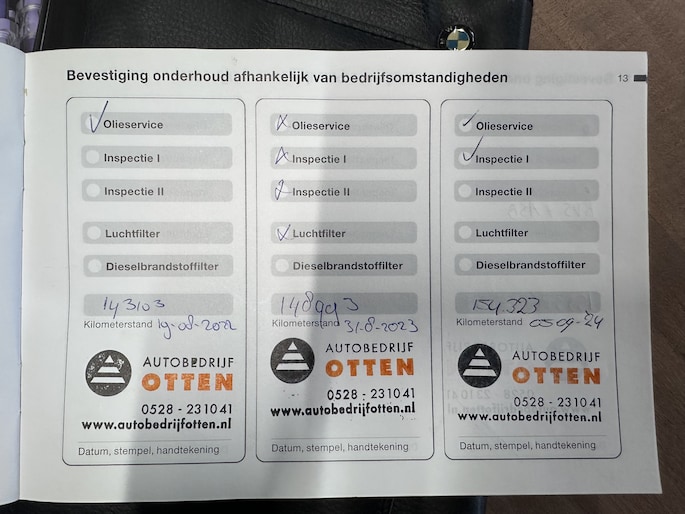 Bevestiging onderhoud afhankelijk van bedrijfsomstandigheden
13
Olieservice
Inspectie I
Inspectie II
Luchtfilter
Dieselbrandstoffilter
143103
Kilometerstand 19-08-2022
AUTOBEDRIJF
OTTEN
0528 - 231041
www.autobedrijfotten.nl
Datum, stempel, handtekening
Olieservice
Inspectie I
Inspectie II
Luchtfilter
Dieselbrandstoffilter
148993
Kilometerstand 31-8-2023
AUTOBEDRIJF
OTTEN
0528 - 231041
www.autobedrijfotten.nl
Datum, stempel, handtekening
Olieservice
Inspectie I
Inspectie II
Luchtfilter
Dieselbrandstoffilter
154.323
Kilometerstand 05 09-'24
AUTOBEDRIJF
OTTEN
0528 - 231041
www.autobedrijfotten.nl
Datum, stempel, handtekening